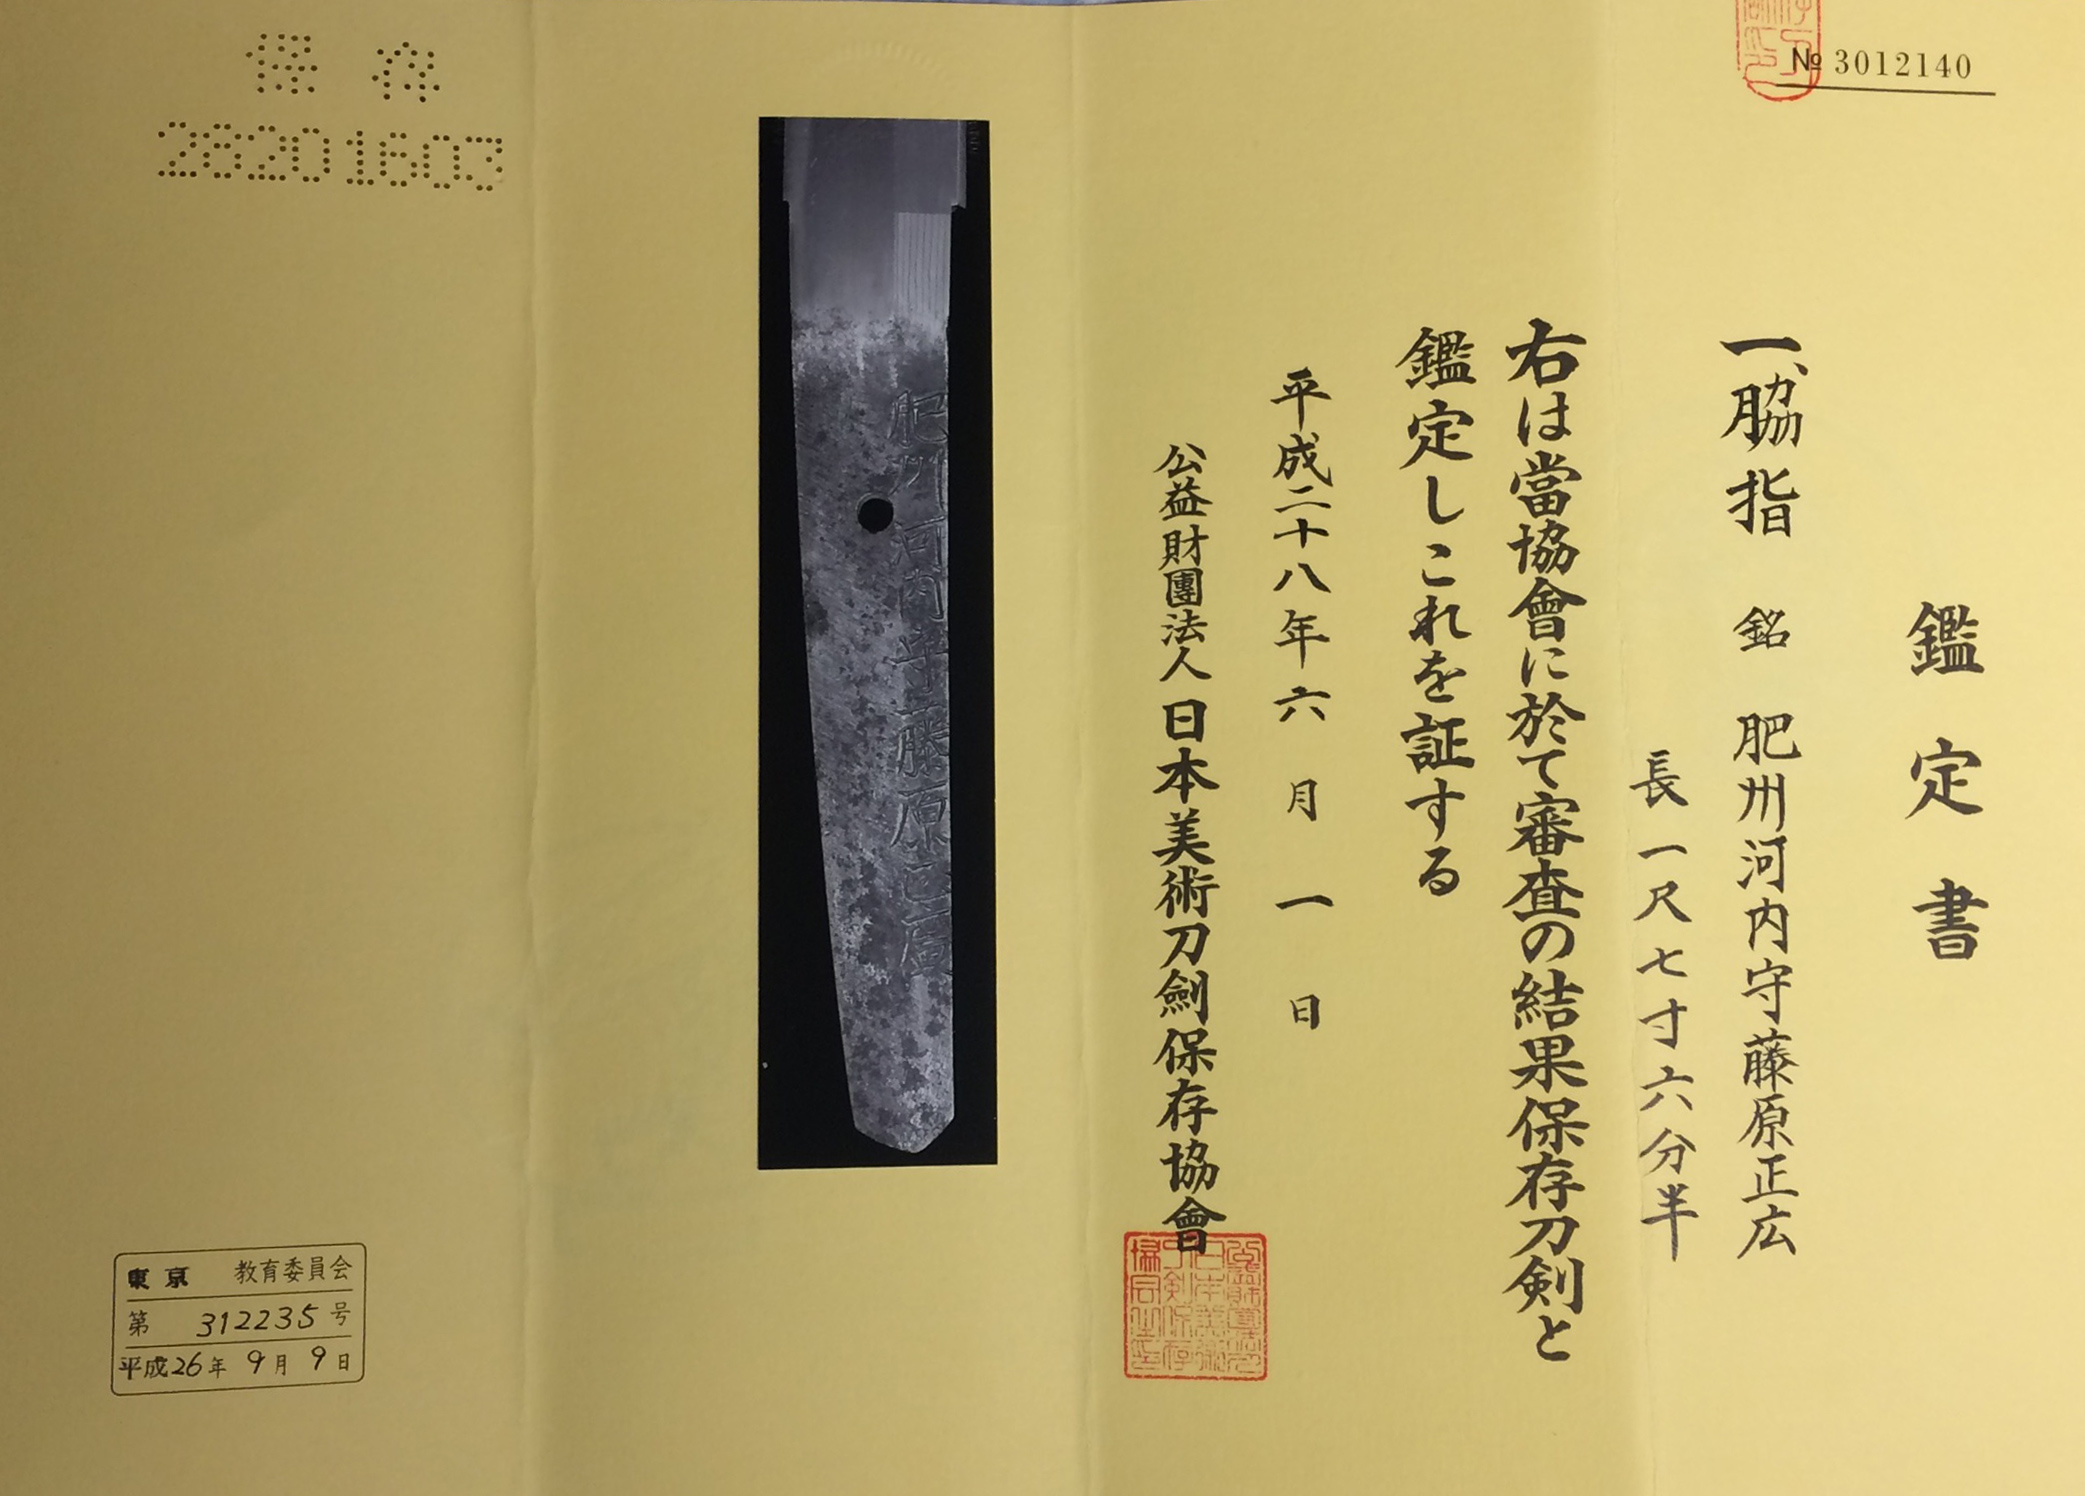 № 3012140
鑑定書
一、脇指 銘 肥州河内守藤原正広
長一尺七寸六分半
右は當協會に於て審査の結果保存刀剣と
鑑定しこれを証する
平成二十八年六月一日
公益財團法人日本美術刀劍保存協會
肥州河内守藤原正廣
保存
28201603
東京 教育委員会
第 312235 号
平成26年 9月 9日